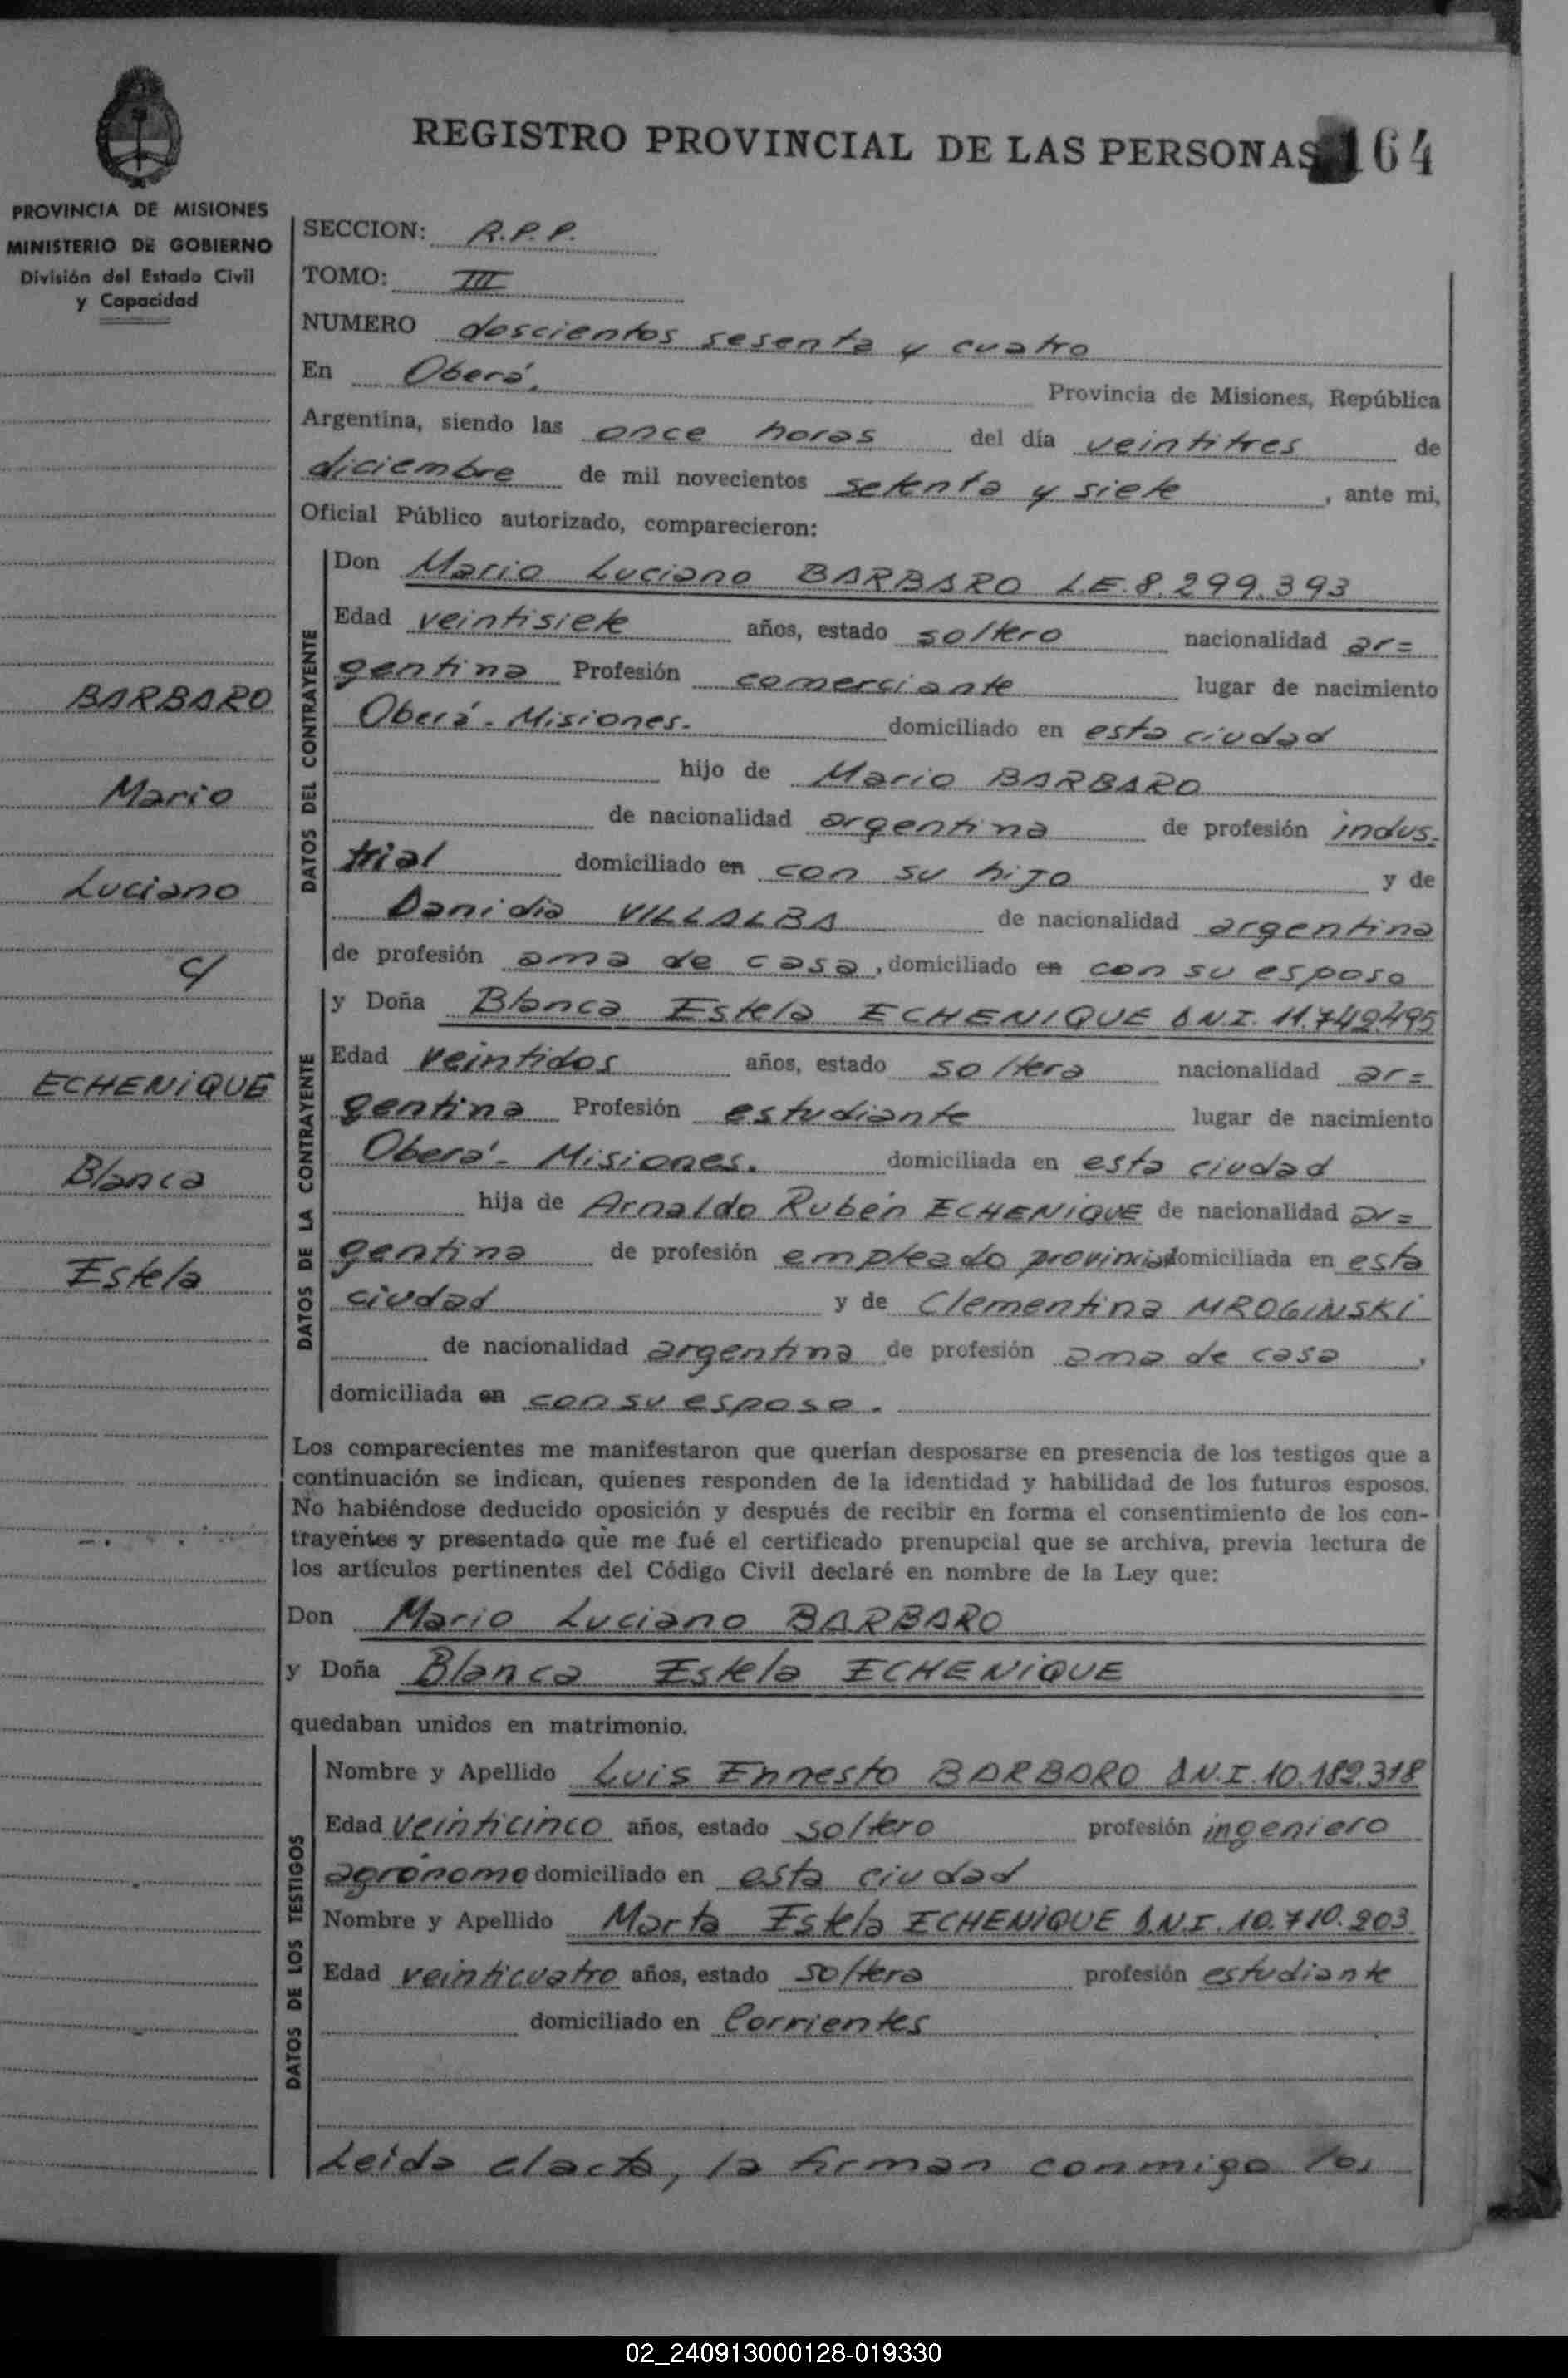 REGISTRO PROVINCIAL DE LAS PERSONAS 164
PROVINCIA DE MISIONES
MINISTERIO DE GOBIERNO
División del Estado Civil
y Capacidad
SECCION: R.P.P.
TOMO: III
NUMERO doscientos sesenta y cuatro
En Oberá, Provincia de Misiones, República
Argentina, siendo las once horas del día veintitres de
diciembre de mil novecientos setenta y siete, ante mi,
Oficial Público autorizado, comparecieron:
BARBARO
Mario
Luciano
c/
ECHENIQUE
Blanca
Estela
DATOS DEL CONTRAYENTE
Don Mario Luciano BARBARO L.E. 8.299.393
Edad veintisiete años, estado soltero nacionalidad ar=
gentina Profesión comerciante lugar de nacimiento
Oberá - Misiones. domiciliado en esta ciudad
hijo de Mario BARBARO
de nacionalidad argentina de profesión indus-
trial domiciliado en con su hijo y de
Danidia VILLALBA de nacionalidad argentina
de profesión ama de casa, domiciliado en con su esposo
DATOS DE LA CONTRAYENTE
y Doña Blanca Estela ECHENIQUE DNI. 11.749.495
Edad veintidos años, estado soltera nacionalidad ar=
gentina Profesión estudiante lugar de nacimiento
Oberá - Misiones. domiciliada en esta ciudad
hija de Arnaldo Rubén ECHENIQUE de nacionalidad ar=
gentina de profesión empleado provincial domiciliada en esta
ciudad y de Clementina MROGINSKI
de nacionalidad argentina de profesión ama de casa,
domiciliada en con su esposo.
Los comparecientes me manifestaron que querían desposarse en presencia de los testigos que a
continuación se indican, quienes responden de la identidad y habilidad de los futuros esposos.
No habiéndose deducido oposición y después de recibir en forma el consentimiento de los con-
trayentes y presentado que me fué el certificado prenupcial que se archiva, previa lectura de
los artículos pertinentes del Código Civil declaré en nombre de la Ley que:
Don Mario Luciano BARBARO
y Doña Blanca Estela ECHENIQUE
quedaban unidos en matrimonio.
DATOS DE LOS TESTIGOS
Nombre y Apellido Luis Ennesto BARBARO D.N.I. 10.182.318
Edad veinticinco años, estado soltero profesión ingeniero
agrónomo domiciliado en esta ciudad
Nombre y Apellido Marta Estela ECHENIQUE D.N.I. 10.710.203
Edad veinticuatro años, estado soltera profesión estudiante
domiciliado en Corrientes
Leida el acta, la firman conmigo los
02_240913000128-019330